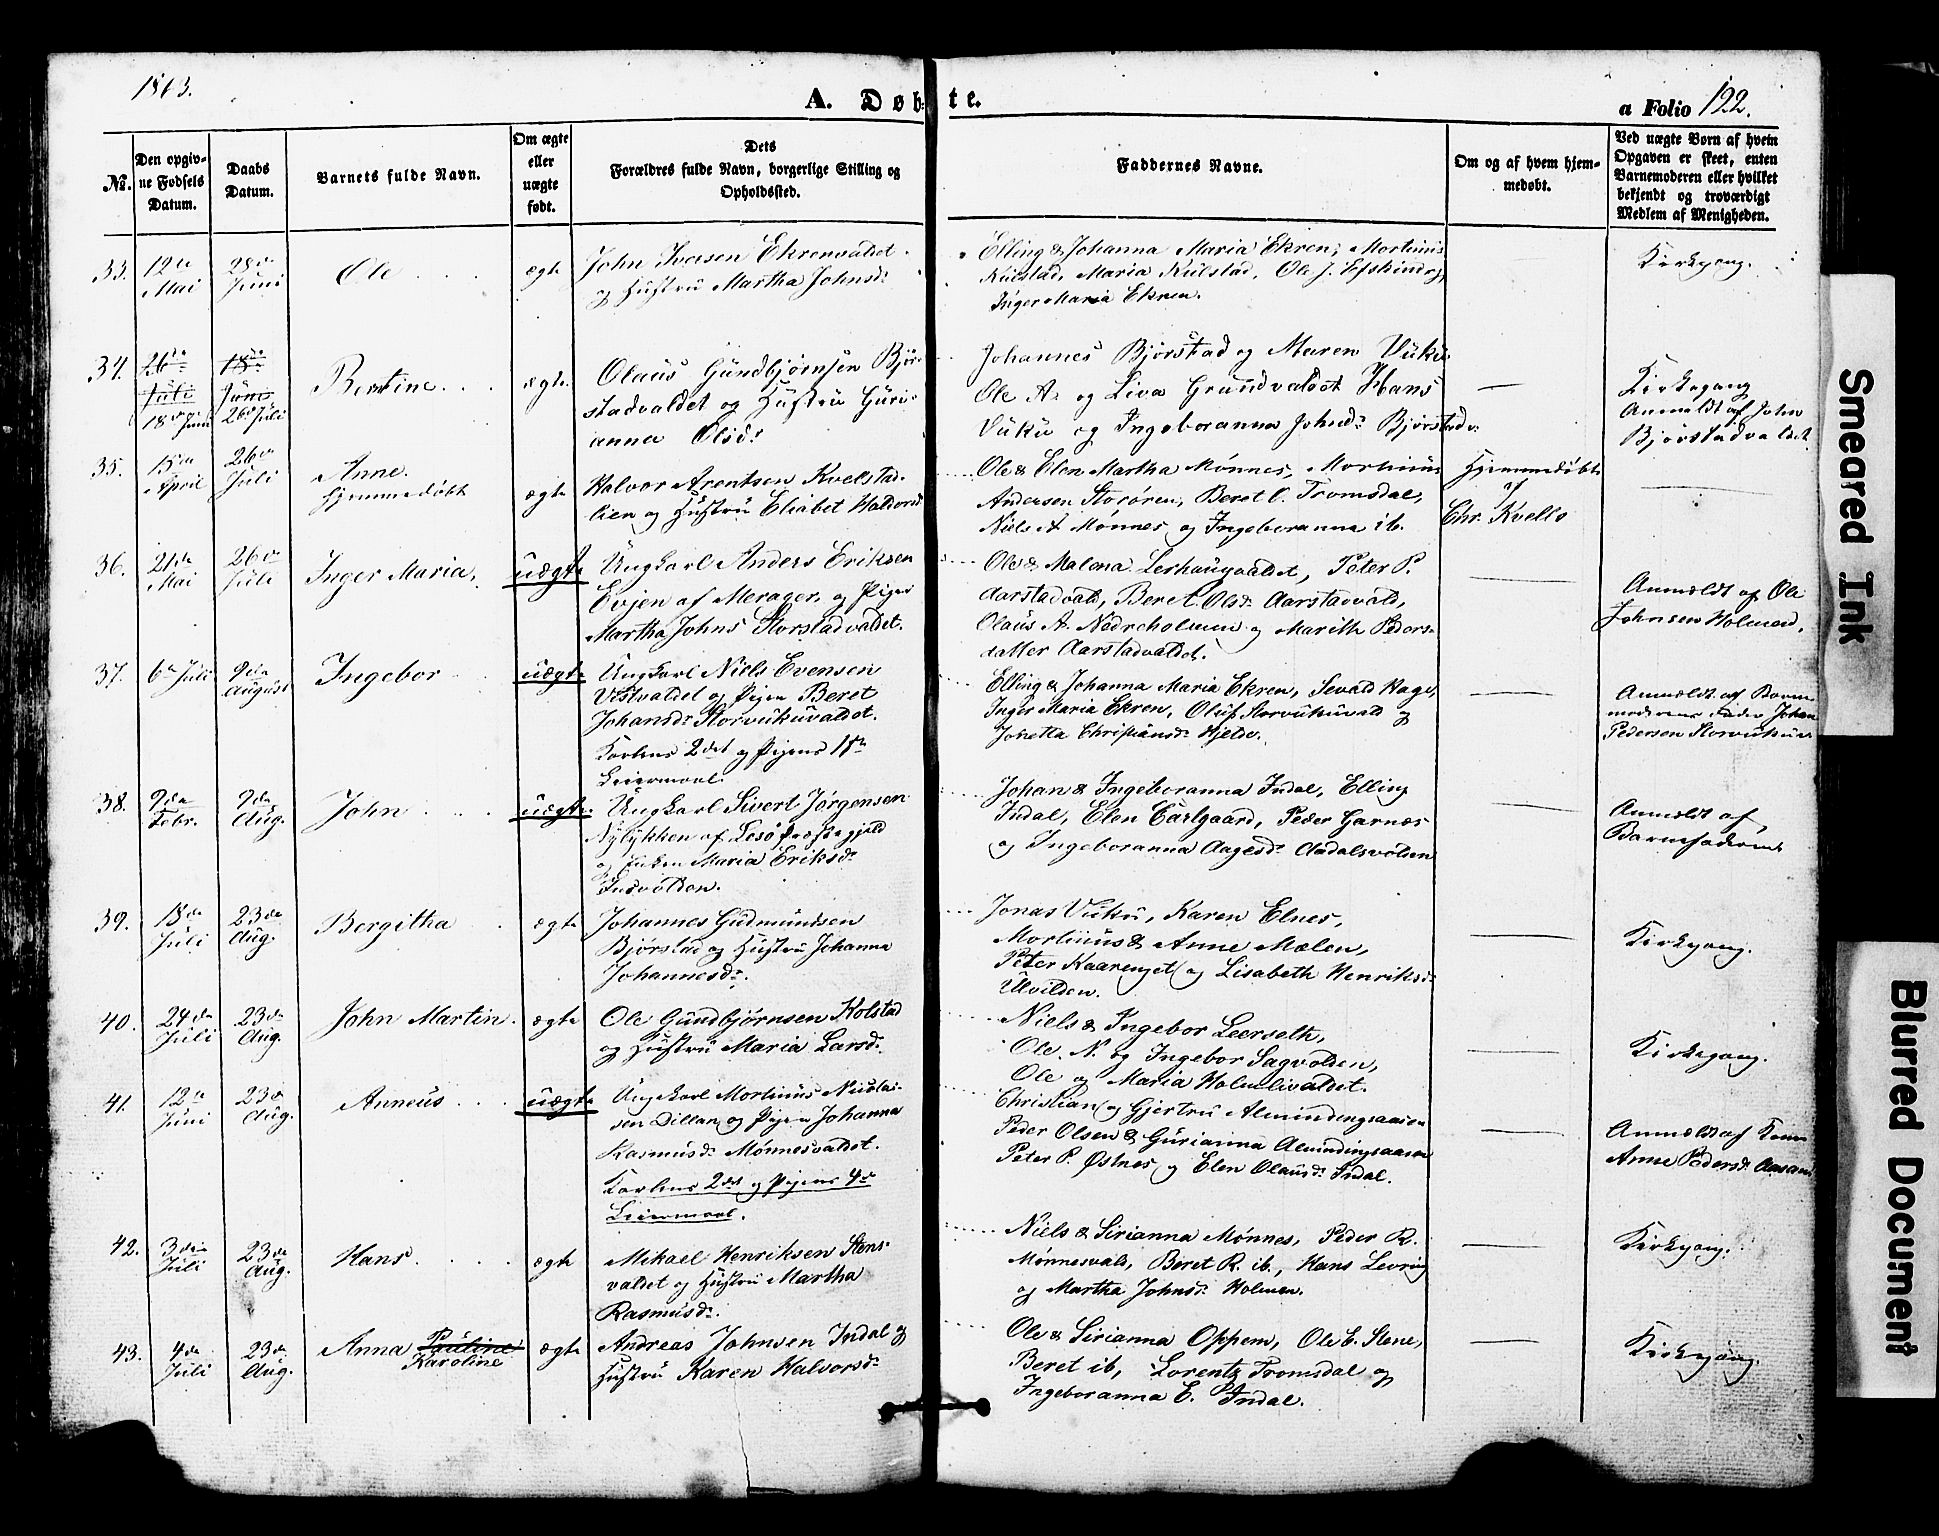 1863.
A. Døbte.
a Folio 122.
No.
Den opgivne Fødsels Datum.
Daabs Datum.
Barnets fulde Navn.
Om ægte eller uægte født.
Dets Forældres fulde Navn, borgerlige Stilling og Opholdssted.
Faddernes Navne.
Om og af hvem hjemmedøbt.
Ved uægte Børn af hvem Opgaven er skeet, enten Barnemoderen eller hvilket bekjendt og troværdigt Medlem af Menigheden.
33. 12te Mai
Juni
Ole
ægte
John Iversen Ekrenvaldet
og Hustru Martha Johnsd:
Elling & Johanna Maria Ekren, Mortinus
Kulstad, Maria Kulstad, Ole J.
Inger Maria Ekren.
Kirkegang.
34. 26de Juli 18de Juni
18de Juni 26de Juli
Bentine
ægte
Olaus Gundbjørnsen Bjør-
stadvaldet og Hustru Guri-
anna Olsd:
Johannes Bjørstad og Maren Vuku
Ole A. og Liva Grundvaldet Hans
Vuku og Ingeboranna Johnsd: Bjørstadv:
Kirkegang
Anmeldt af John
Bjørstadvaldet
35. April
26de Juli
Anne.
Hjemmedøbt
ægte
Halvor Arentsen Kvelstad-
lien og Hustru Elisabet Haldorsd
Ole & Elen Martha Mønnes, Mortinus
Andersen Storøren, Beret C. Tromsdal,
Niels A Mønnes og Ingeboranna ib.
Hjemmedøbt
af
Chr. Kvello
36. 21de Mai
26de Juli
Inger Maria,
uægte
Ungkarl Anders Eriksen
Evjen af Merager, og Pigen
Martha Johns Storstadvaldet.
Ole & Malena Lerhaugvaldet, Peter P.
Aarstadvald, Beret Olsd: Aarstadvald,
Olaus A. Nedreholmen og Marith Peders-
datter Aarstadvaldet.
Anmeldt af Ole
Johnsen Holmen.
37. 6te Juli
9de August
Ingebor
uægte
Ungkarl Niels Evensen
Vestvaldet og Pigen Beret
Johansd: Storvukuvaldet.
Karlens 2det og Pigens 1ste
Leiermaal.
Elling & Johanna Maria Ekren, Sevald Hage,
Inger Maria Ekren, Oluf Storvukuvald og
Jonetta Christiansd: Hjelde.
Anmeldt af Barne-
moderens Fader Johan
Pedersen Storvuku
38. 9de Febr.
9de Aug.
John
uægte
Ungkarl Sivert Jørgensen
Nylykken af Lesø Præstegjeld
og Enken Maria Eriksd:
Indvolden.
Johan & Ingeboranna Indal, Elling
Indal, Elen Carlgaard, Peder Garnæs
og Ingeboranna Aagesd: Aadalsvolden
Anmeldt af
Barnefaderen
39. 18de Juli
23de Aug.
Bergitha
ægte
Johannes Gudmundsen
Bjørstad og Hustru Johanna
Johannesd:
Jonas Vuku, Karen Elnes,
Mortinus & Anne Mælen,
Peter Kaarenget og Lisabeth Henriksd:
Ulvilden.
Kirkegang.
40. 24de Juli
23de Aug.
John Martin
ægte
Ole Gundbjørnsen Kolstad
og Hustru Maria Larsd:
Niels & Ingebor Leerseth,
Ole N. og Ingebor Sagvolden,
Ole og Maria Holmlivaldet.
Kirkegang.
41. 12te Juni
23de Aug.
Anneus
uægte
Ungkarl Mortinus Nicolai-
sen Dillan og Pigen Johanna
Rasmusd: Mønnesvaldet.
Karlens 2det og Pigens 4de
Leiermaal.
Christian og Gjertru Almindingsaasen
Peder Olsen & Gurianna Almindingsaasen
Peter P. Østnes og Elen Olausd: Indal.
Anmeldt af Konen
Anne Pedersd:
42. 3die Juli
23de Aug.
Hans
ægte
Mikael Henriksen Stens-
valdet og Hustru Martha
Rasmusd:
Niels & Sirianna Mønnes, Peder R.
Mønnesvald, Beret R. ib., Hans Levring
og Martha Johnsd: Holmen.
Kirkegang.
43. 4de Juli
23de Aug.
Anna Pauline
Karoline
ægte
Andreas Johnsen Indal og
Hustru Karen Halvorsd:
Ole & Sirianna Oppem, Ole E. Stene,
Beret ib, Lorentz Tromsdal og
Ingeboranna E. Indal.
Kirkegang.
Smeared Ink
Blurred Document